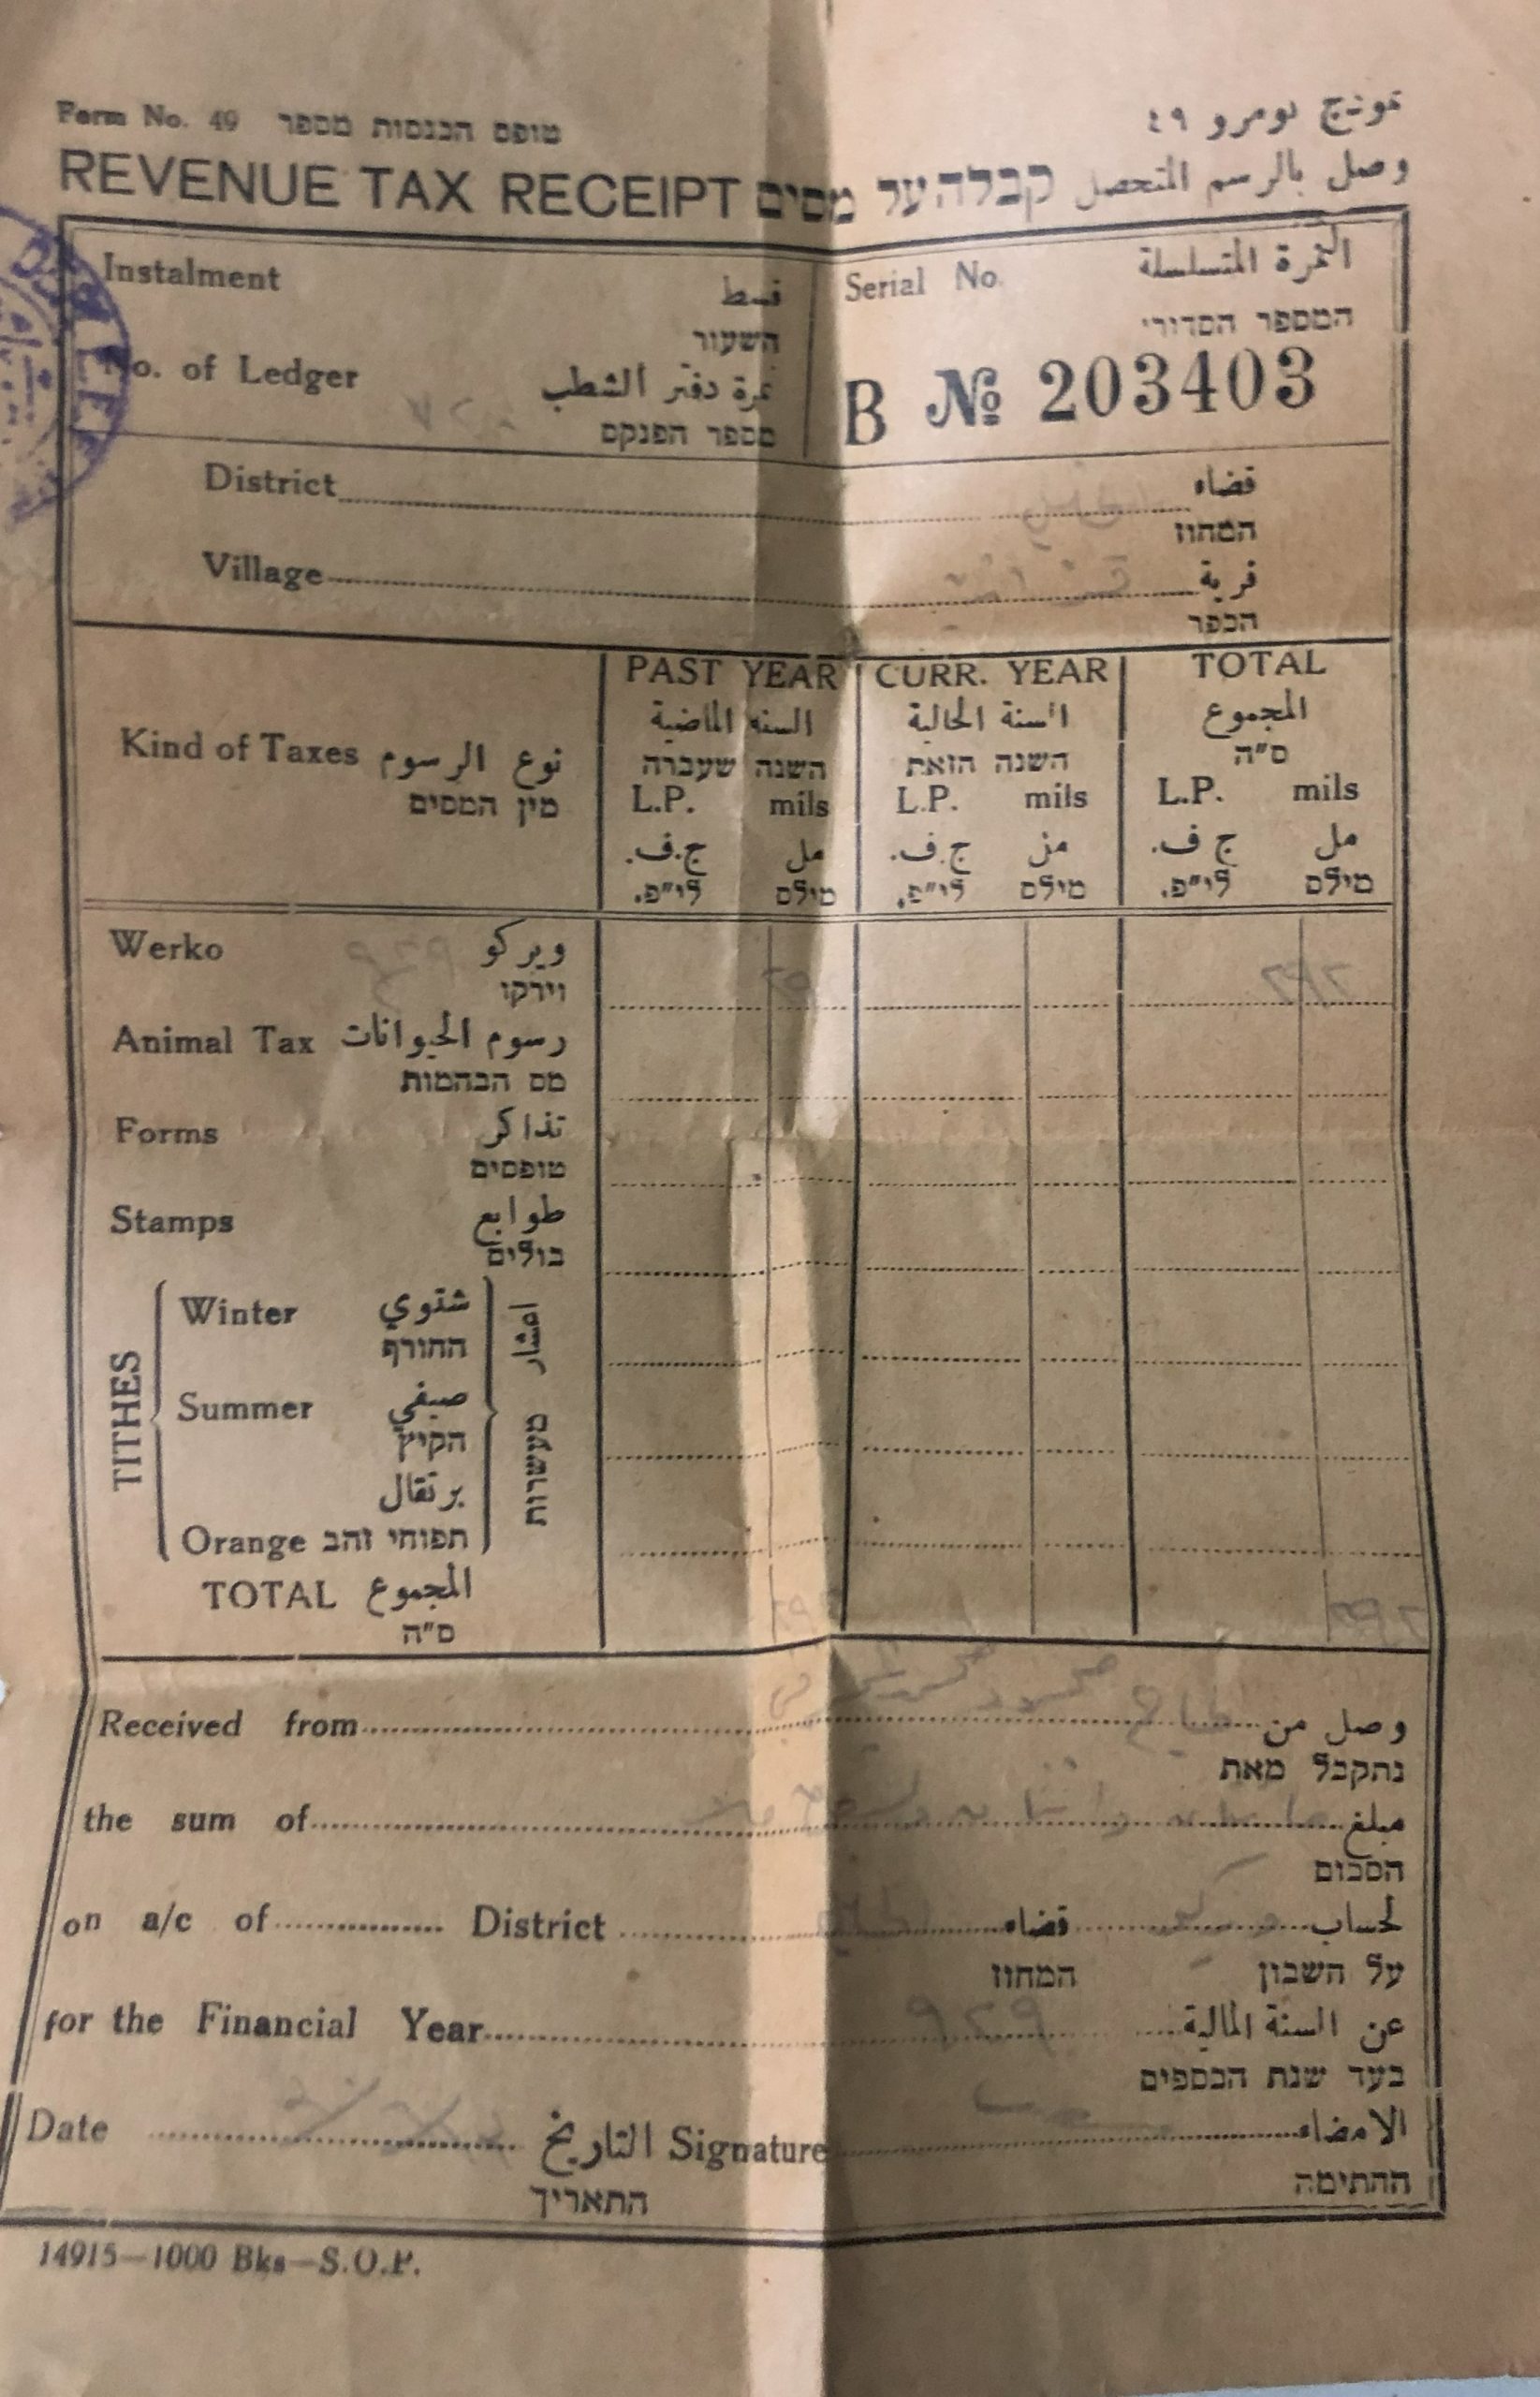 Form No. 49 טופס הכנסות מספר نموذج نومرو ٤٩
REVENUE TAX RECEIPT קבלה על מסים وصل بالرسم المتحصل
Instalment قسط
השעור
No. of Ledger نمرة دفتر الشطب
מספר הפנקס
Serial No. النمرة المتسلسلة
המספר הסדורי
B № 203403
District قضاء
המחוז
Village قرية
הכפר
Kind of Taxes نوع الرسوم
מין המסים
PAST YEAR CURR. YEAR TOTAL
السنه الماضية السنة الحالية المجموع
השנה שעברה השנה הזאת ס"ה
L.P. mils L.P. mils L.P. mils
ج.ف. مل ج.ف. مل ج ف. مل
לי"פ. מילס לי"פ. מילס לי"פ. מילס
Werko ويركو ٩٢٩
וירקו
Animal Tax رسوم الحيوانات
מס הבהמות
Forms تذاكر
טופסים
Stamps طوابع
בולים
TITHES اعشار מעשרות
Winter شتوي
החורף
Summer صيفي
הקיץ
برتقال
Orange תפוחי זהב
TOTAL المجموع
ס"ה
Received from وصل من
נתקבל מאת
the sum of مبلغ
הסכום
on a/c of District قضاء لحساب
המחוז על חשבון
for the Financial Year ٩٢٩ عن السنة المالية
בעד שנת הכספים
Date التاريخ Signature الامضاء
התאריך ההתימה
14915—1000 Bks—S.O.P.